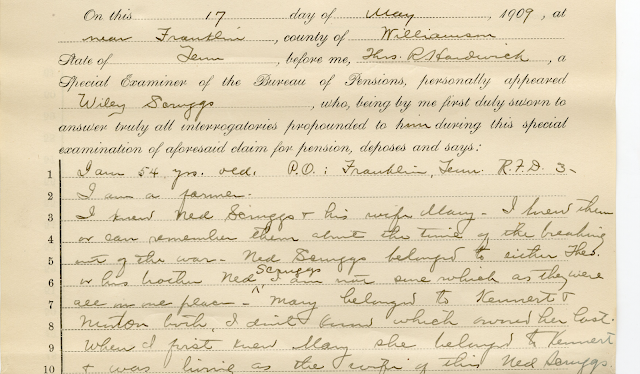 On this 17 day of May, 1909, at
near Franklin, county of Williamson
State of Tenn, before me, Thos. R. Hardwick, a
Special Examiner of the Bureau of Pensions, personally appeared
Wiley Scruggs, who, being by me first duly sworn to
answer truly all interrogatories propounded to him during this special
examination of aforesaid claim for pension, deposes and says:
1 I am 54 yrs. old. P.O.: Franklin, Tenn. R.F.D. 3-
2 I am a farmer.
3 I knew Ned Scruggs & his wife Mary - I knew them
4 or can remember them about the time of the breaking
5 out of the war - Ned Scruggs belonged to either Thos.
6 or his brother Ned Scruggs I am not sure which as they were
7 all in one place - Mary belonged to Kennert &
8 Newton both, I don't know which owned her last.
9 When I first knew Mary she belonged to Kennert
10 & was living as the wife of this Ned Scruggs.